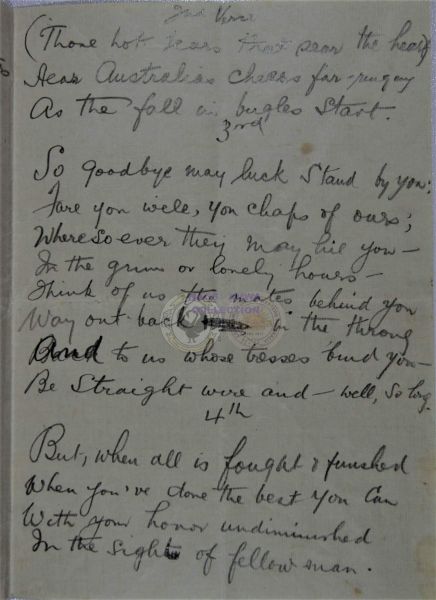 2nd Verse
(Those hot tears that sear the heart)
Hear Australias cheers far-ringing
As the fall in bugles start.
3rd
So goodbye may luck stand by you;
Fare you well, you chaps of ours;
Wheresoever they may hie you —
In the grim or lonely hours —
Think of us the mates behind you
Way out back in the throng
And to us whose tresses bind you —
Be straight wire and — well, so long.
4th
But, when all is fought & finished
When you've done the best you can
With your honor undiminished
In the sight of fellow man.
COLLECTION